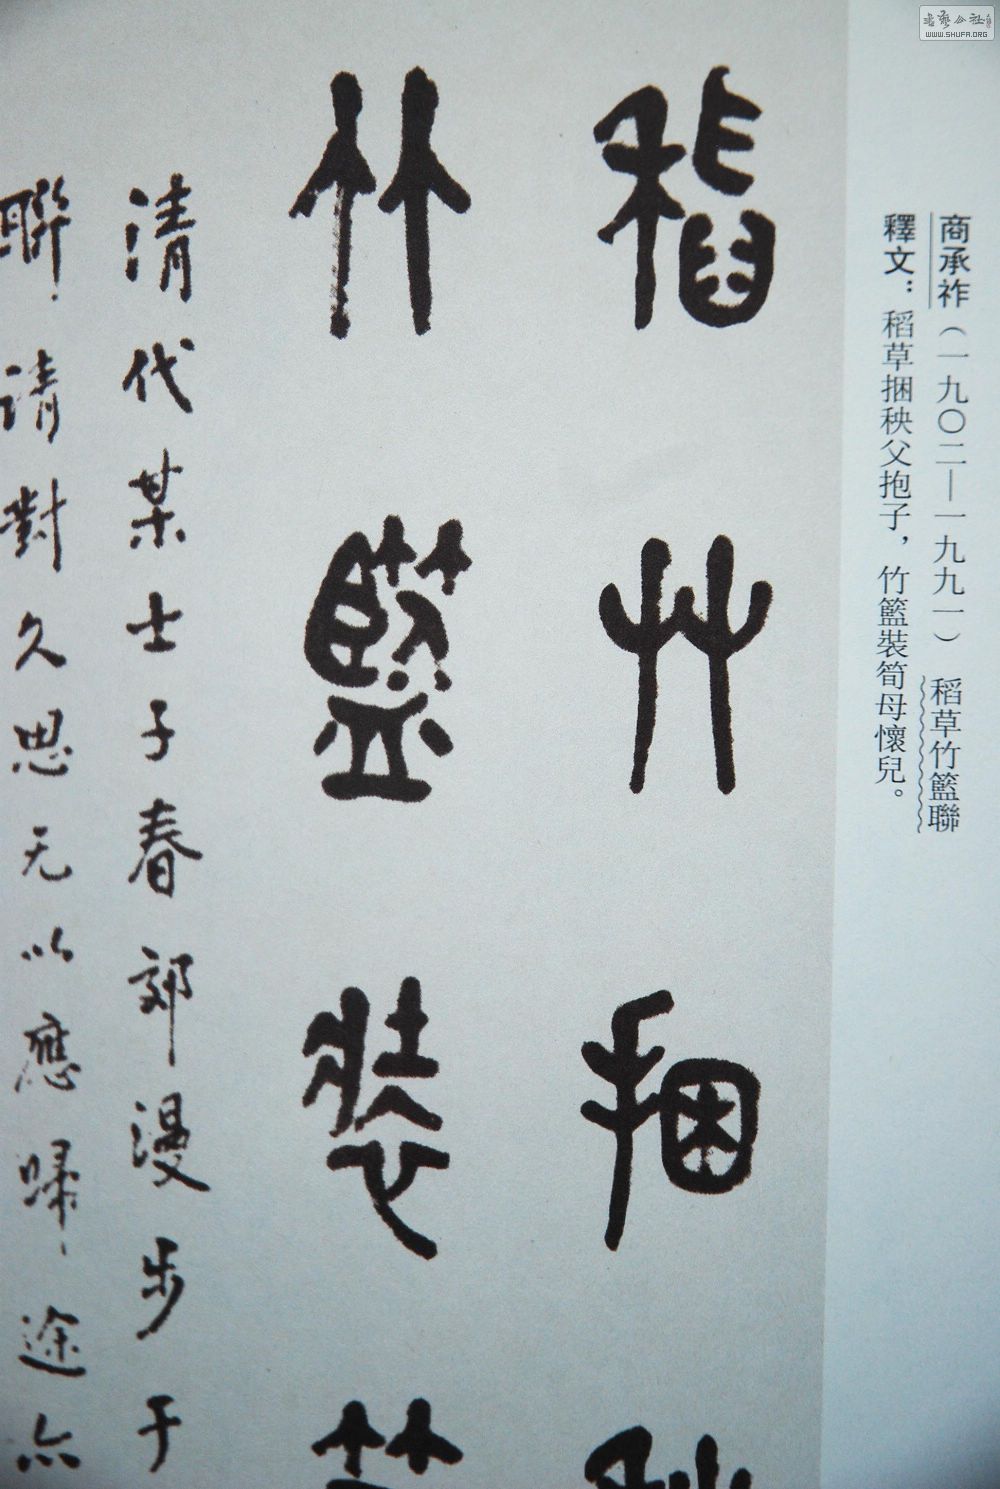 商承祚（一九〇二—一九九一） 稻草竹籃聯
釋文：稻草捆秧父抱子，竹籃裝筍母懷兒。
稻艸捆秧
竹籃裝筍
清代某士子春郊漫步于
聯請對久思无以應歸途亦
書藝公社
WWW.SHUFA.ORG